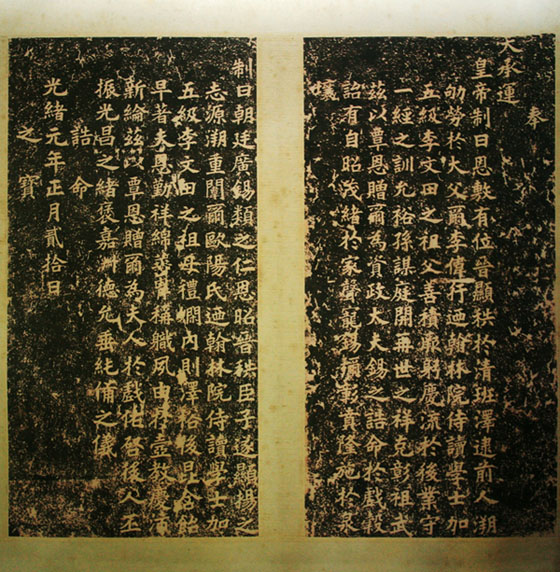 奉
天承運
皇帝制曰恩敷有位晉顯秩於清班澤逮前人溯
劬勞於大父爾李偉行迺翰林院侍讀學士加
五級李文田之祖父善積厥躬慶流於後業守
一經之訓允裕孫謀庭開再世之祥克彰祖武
茲以覃恩贈爾為資政大夫錫之誥命於戲穀
詒有自昭茂緒於家聲寵錫彌彰賁隆施於泉
壤
制曰朝廷廣錫類之仁恩昭晉秩臣子遂顯揚之
志源溯重闈爾歐陽氏迺翰林院侍讀學士加
五級李文田之祖母禮嫻內則澤裕後昆含飴
早著夫恩勤祥綿稱職夙由於壼教慶沛
新綸茲以覃恩贈爾為夫人於戲佑啓後人丕
振光昌之緒褒嘉懿德允垂純備之儀
誥命
光緒元年正月貳拾日
之寶